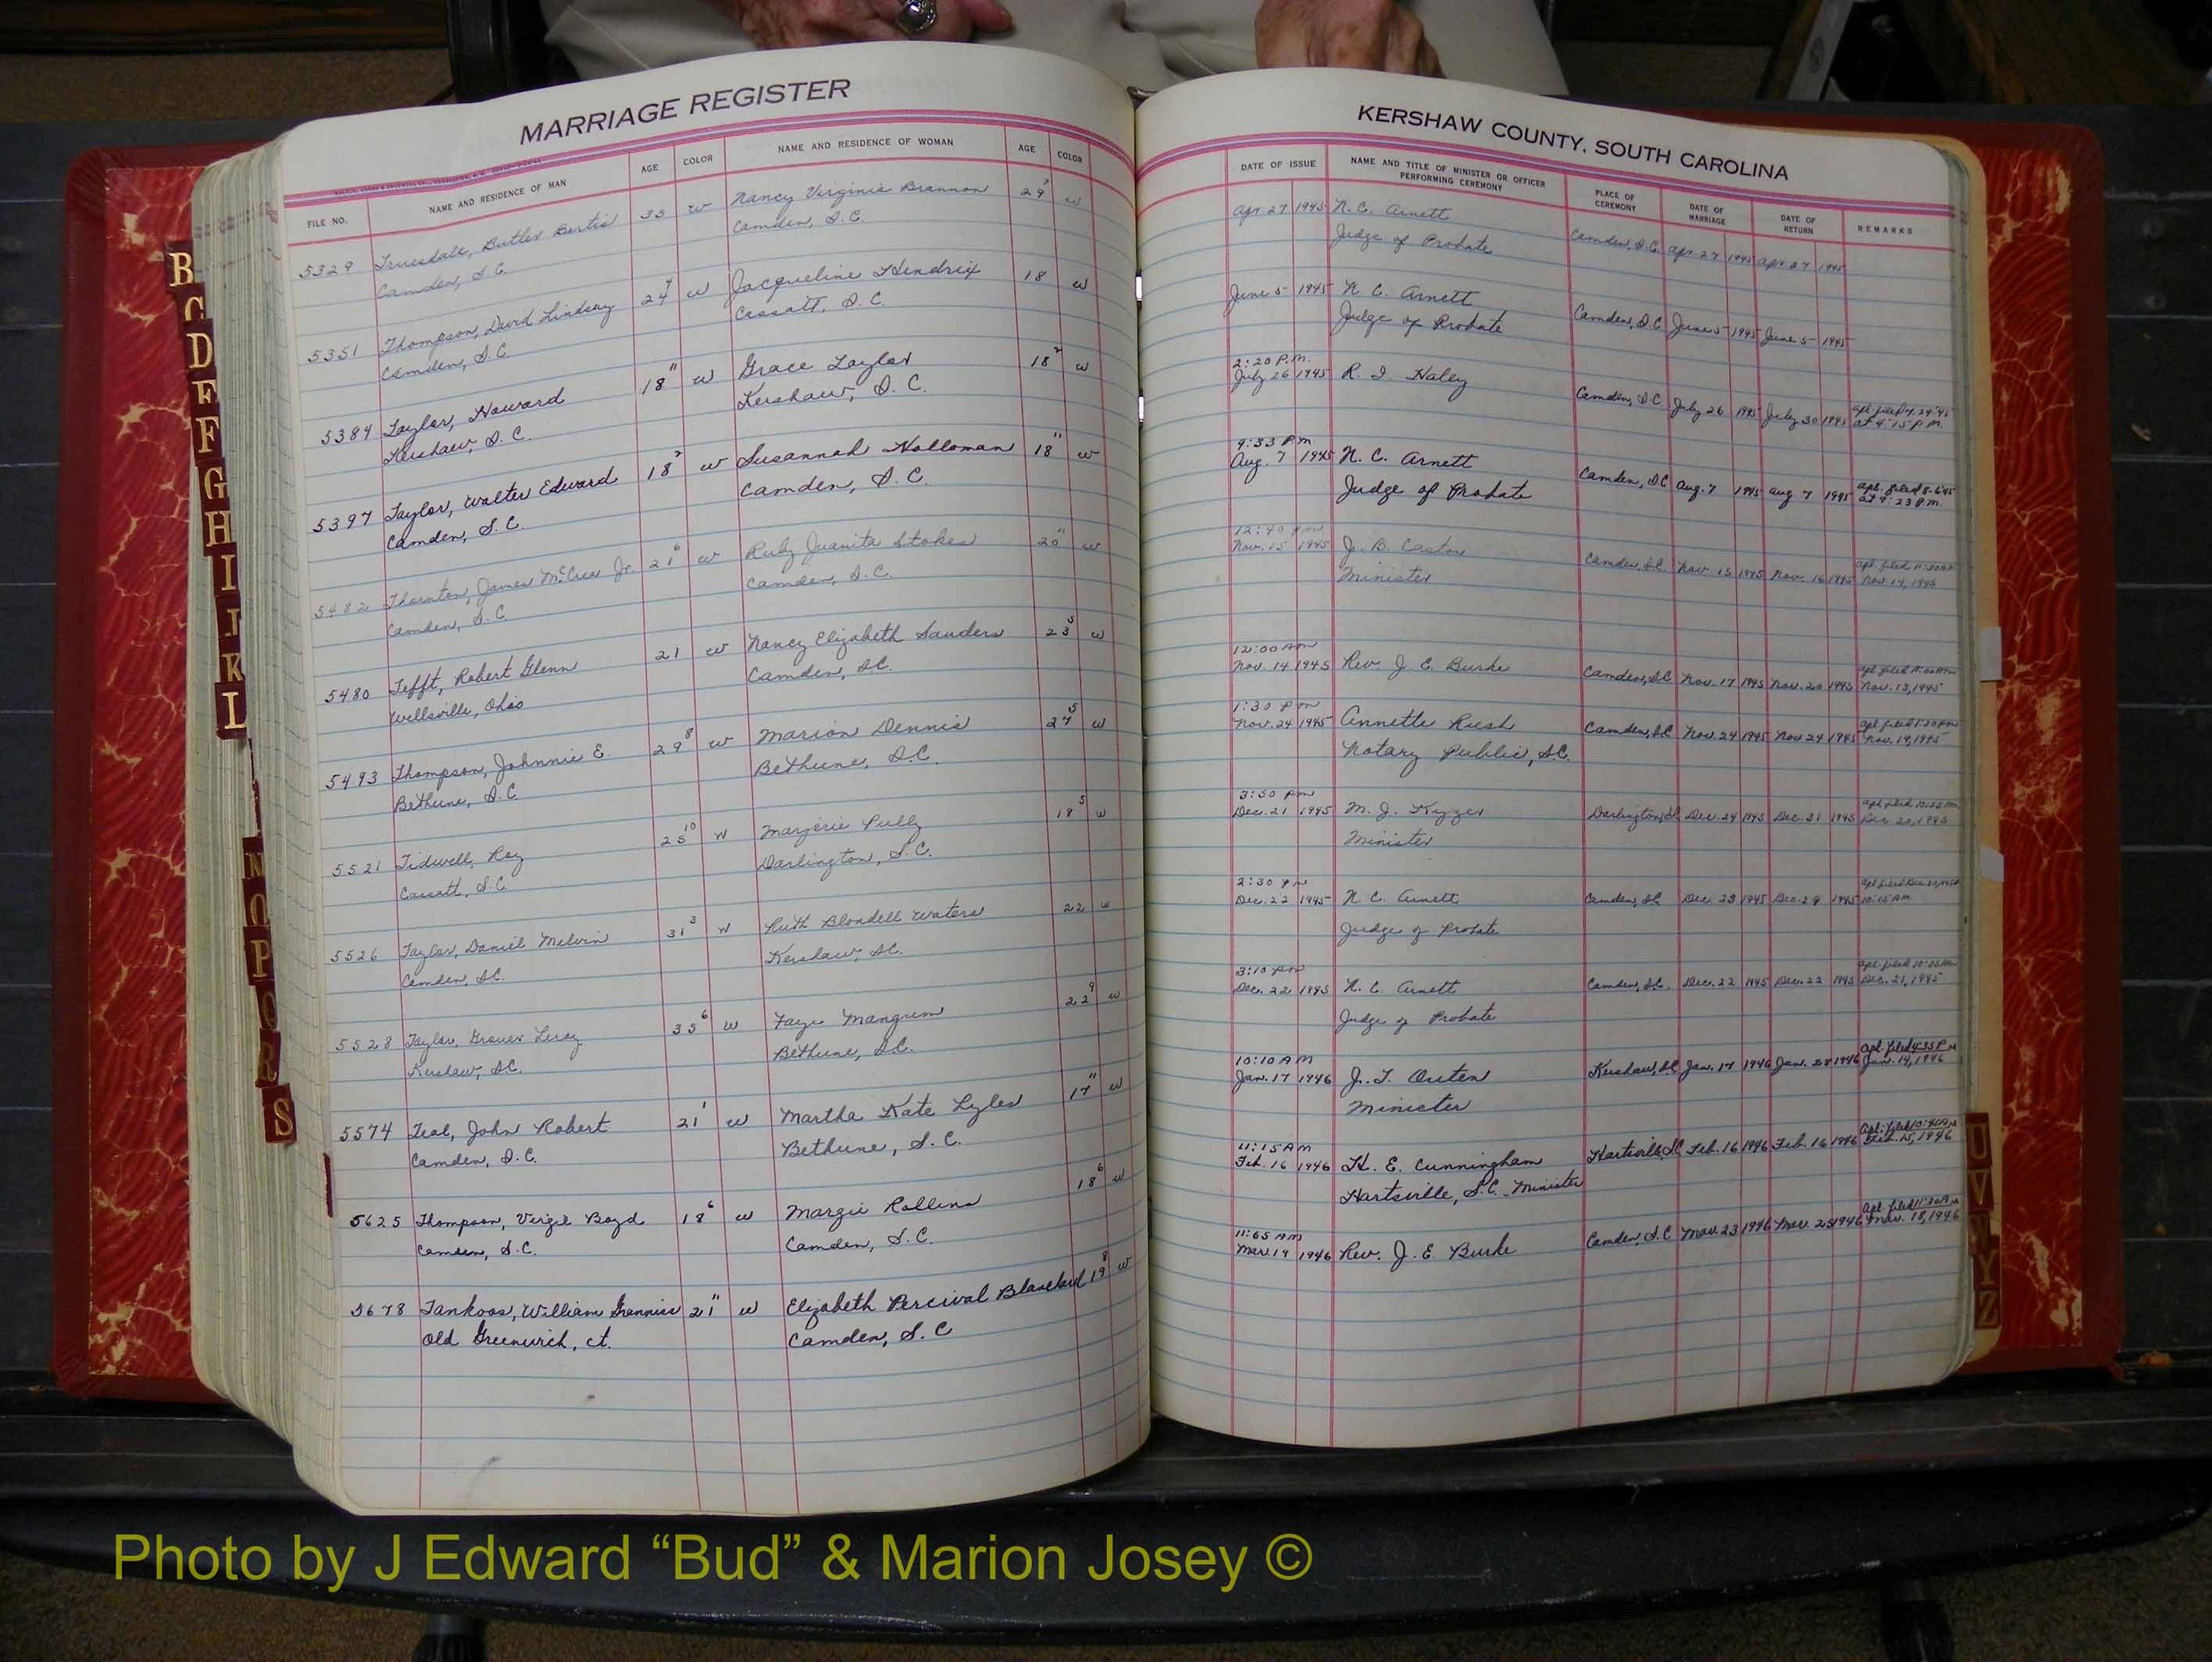 MARRIAGE REGISTER
FILE NO. NAME AND RESIDENCE OF MAN AGE COLOR NAME AND RESIDENCE OF WOMAN AGE COLOR
5329 Truesdale, Butler Bertis 33 W Nancy Virginia Brannon 29 W
Camden, S.C. Camden, S.C.
5351 Thompson, David Lindsay 24 W Jacqueline Hendrix 18 W
Camden, S.C. Cassatt, S.C.
5384 Taylor, Howard 18 11 W Grace Taylor 18 2 W
Kershaw, S.C. Kershaw, S.C.
5397 Taylor, Walter Edward 18 2 W Susannah Holloman 18 11 W
Camden, S.C. Camden, S.C.
5482 Thornton, James McCrea Jr. 21 6 W Ruby Juanita Stokes 20 11 W
Camden, S.C. Camden, S.C.
5480 Tefft, Robert Glenn 21 W Nancy Elizabeth Sanders 23 5 W
Wellsville, Ohio Camden, S.C.
5493 Thompson, Johnnie E. 29 8 W Marion Dennis 27 5 W
Bethune, S.C. Bethune, S.C.
5521 Tidwell, Roy 25 10 W Marjorie Pully 18 5 W
Cassatt, S.C. Darlington, S.C.
5526 Taylor, Daniel Melvin 31 3 W Ruth Blondell Waters 22 W
Camden, S.C. Kershaw, S.C.
5528 Taylor, Grover Leroy 35 6 W Faye Mangum 22 9 W
Kershaw, S.C. Bethune, S.C.
5574 Teal, John Robert 21 1 W Martha Kate Lyles 17 11 W
Camden, S.C. Bethune, S.C.
5625 Thompson, Virgil Boyd 18 6 W Margie Rollins 18 6 W
Camden, S.C. Camden, S.C.
5678 Tankoos, William Granniss 21 11 W Elizabeth Percival Blanchard 19 8 W
Old Greenwich, Ct. Camden, S.C
KERSHAW COUNTY, SOUTH CAROLINA
DATE OF ISSUE NAME AND TITLE OF MINISTER OR OFFICER PERFORMING CEREMONY PLACE OF CEREMONY DATE OF MARRIAGE DATE OF RETURN REMARKS
Apr. 27 1945 N. C. Arnett Camden, S.C. Apr. 27 1945 Apr. 27 1945
Judge of Probate
June 5 1945 N. C. Arnett Camden, S.C June 5 1945 June 5 1945
Judge of Probate
2:20 P.M.
July 26 1945 R. I. Haley Camden, S.C July 26 1945 July 30 1945 at 4:15 P.M.
9:33 P.M.
Aug. 7 1945 N. C. Arnett Camden, S.C Aug. 7 1945 Aug 7 1945 apl. filed 8-6-45
Judge of Probate at 9:23 P.M.
12:40 pm
Nov. 15 1945 J. B. Caston Camden, S.C. Nov. 15 1945 Nov. 16 1945 apl. filed 11:30 AM
Minister Nov. 14, 1945
12:00 AM
Nov. 14 1945 Rev. J. E. Burke Camden, S.C Nov. 17 1945 Nov. 20 1945 Nov. 13, 1945
1:30 pm
Nov. 24 1945 Annette Rush Camden, S.C Nov. 24 1945 Nov 24 1945 Nov. 19, 1945
Notary Public, S.C.
3:50 pm
Dec. 21 1945 M. J. Kyzer Darlington, SC Dec. 24 1945 Dec. 31 1945 Dec. 20, 1945
Minister
2:30 pm
Dec. 22 1945 N. C. Arnett Camden, S.C Dec. 23 1945 Dec. 29 1945 10:15 AM
Judge of Probate
3:10 pm
Dec. 22 1945 N. C Arnett Camden, S.C. Dec. 22 1945 Dec. 22 1945 Dec. 21, 1945
Judge of Probate
10:10 AM apl. filed 4:35 P.M
Jan. 17 1946 J. T. Outen Kershaw, SC Jan. 17 1946 Jan. 28 1946 Jan. 14, 1946
Minister
11:15 AM apl. filed 10:40 AM
Feb. 16 1946 H. E. Cunningham Hartsville, SC Feb. 16 1946 Feb. 16 1946 Feb. 15, 1946
Hartsville, S.C. Minister
11:55 AM apl. filed 11:30 AM
Mar. 19 1946 Rev. J. E. Burke Camden, S.C Mar. 23 1946 Mar. 25 1946 Mar. 18, 1946
B
C
D
E
F
G
H
I
J
K
L
N
O
P
Q
R
S
U
V
Y
Z
Photo by J Edward “Bud” & Marion Josey ©